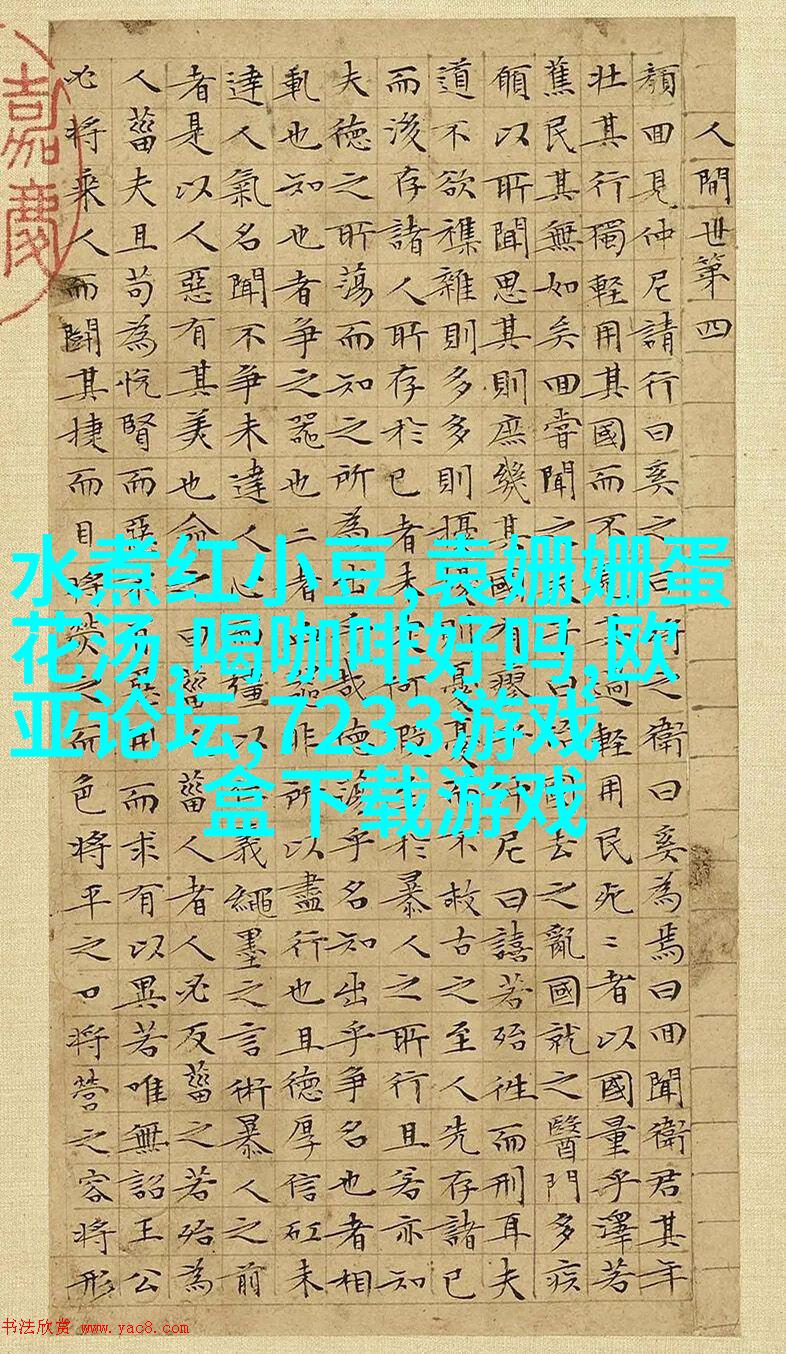 人間世第四
顏回見仲尼請行曰奚之曰之衛曰奚為焉曰回聞衛君其年
壯其行獨輕用其國而不過輕用民死〻者以國量乎澤若
蕉民其無如矣回嘗聞之曰國去之亂國就之醫門多疾
願以所聞思其則庶幾其國有瘳乎仲尼曰譆若殆往而刑耳夫
道不欲襍雜則多多則擾則憂憂不救古之至人先存諸已
而後存諸人所存於已者未何暇於暴人之所行且若亦知
夫德之所蕩而知之所為出乎哉德蕩乎名知出乎爭名也者相
軋也知也者爭之器也二者凶器非所以盡行也且德厚信矼未
達人氣名聞不爭未達人心彊以義繩墨之言術暴人之前
者是以人惡有其美也命之曰菑菑人者人必反菑之若殆為
人菑夫且苟為悅賢而惡惡用而求有以異若唯無詔王公
必將乘人而鬭其捷而目將熒之而色將平之口將營之容將形
嘉慶
水煮红小豆,袁姗姗蛋
花汤,喝咖啡好吗,欧
亚论坛,7233游戏
盒下载游戏
书法欣赏 www.yac8.com